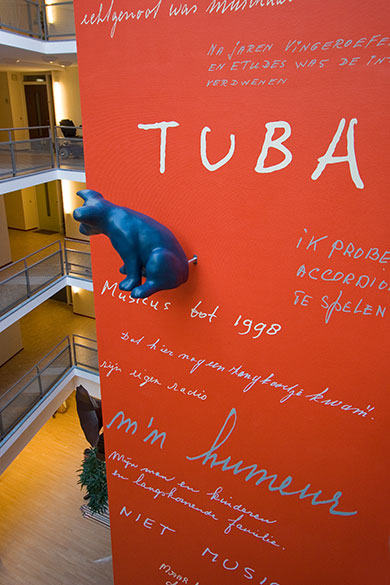 echtgenoot was muzikaal
NA JAREN VINGEROEFE
EN ETUDES WAS DE IN
VERDWENEN
TUBA
iK PROBE
ACCORDIO
TE SPELEN
Musicus tot 1998
Dat hier nog een zangkoortje kwam".
zijn eigen radio
m'n humeur
Mijn man en kinderen
en langskomende familie.
NIET MUSi
MAAR